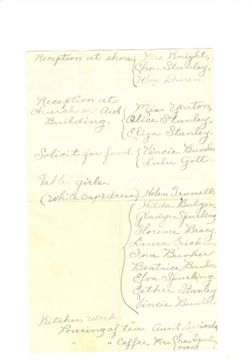 Reception at shore Mr. Knight,
Stanley,
Wm
Reception at
Church or Aid
Building.
Miss Heaton,
Alice Stanley,
Eliza Stanley.
Solicit for food Vincie Bunker
Lulu Gott.
Table girls.
(White Cap & dress) Helen Trussell
Hilda Bulger
Gladys Spurling
Florence Bracy
Laura
Bunker
Beatrice Bunker
Elva Spurling
Esther Stanley
Vincie Bunker
Kitchen Work
Pouring of tea Aunt
" Coffee Mrs. Stanley